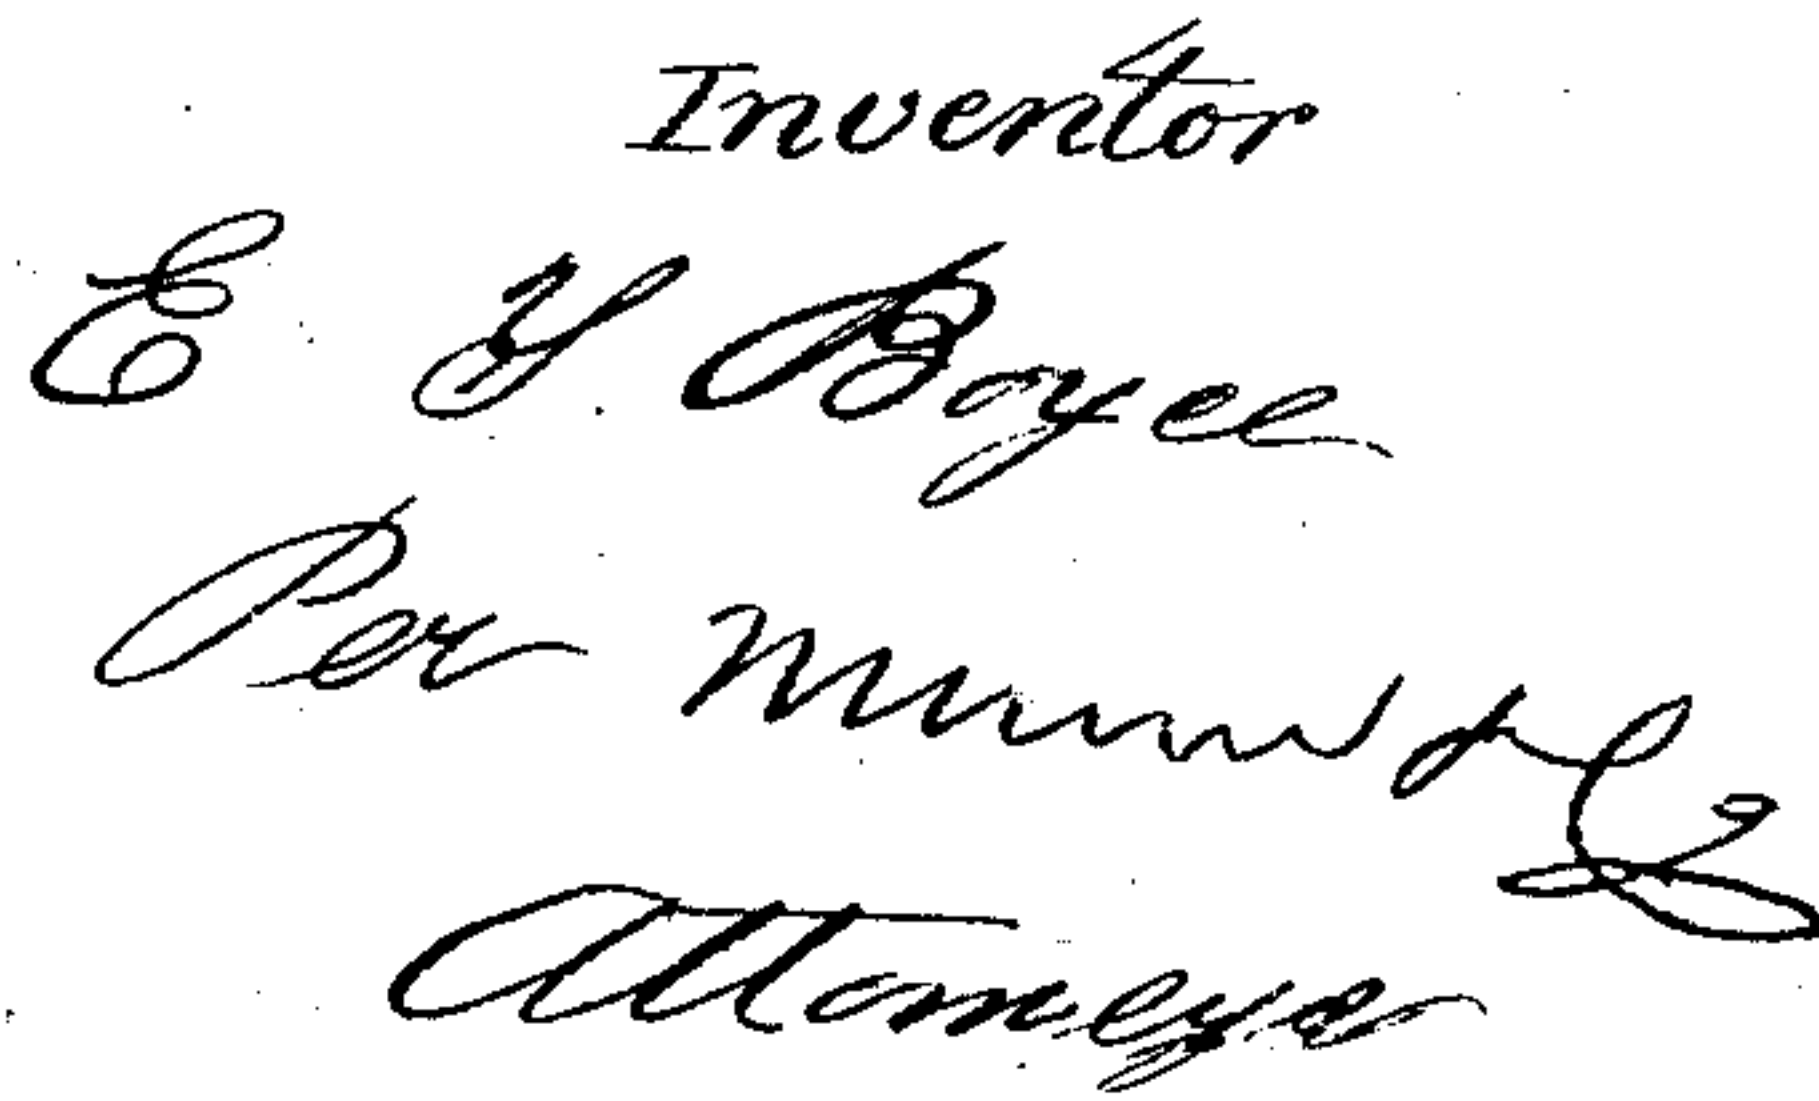 Inventor
E Y Boyce
Per Munn & Co
Attorneys